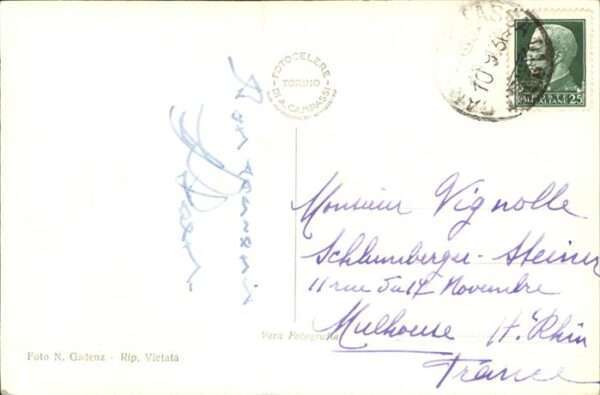 FOTOCELERE
TORINO
DI A. CAMPASSI
10.9.36
POSTE ITALIANE 25
Bon souvenir
Monsieur Vignolle
Schlumberger-Steiner
11 rue du 17 Novembre
Mulhouse Ht Rhin
France
Vera Fotografia
Foto N. Gadenz - Rip. Vietata